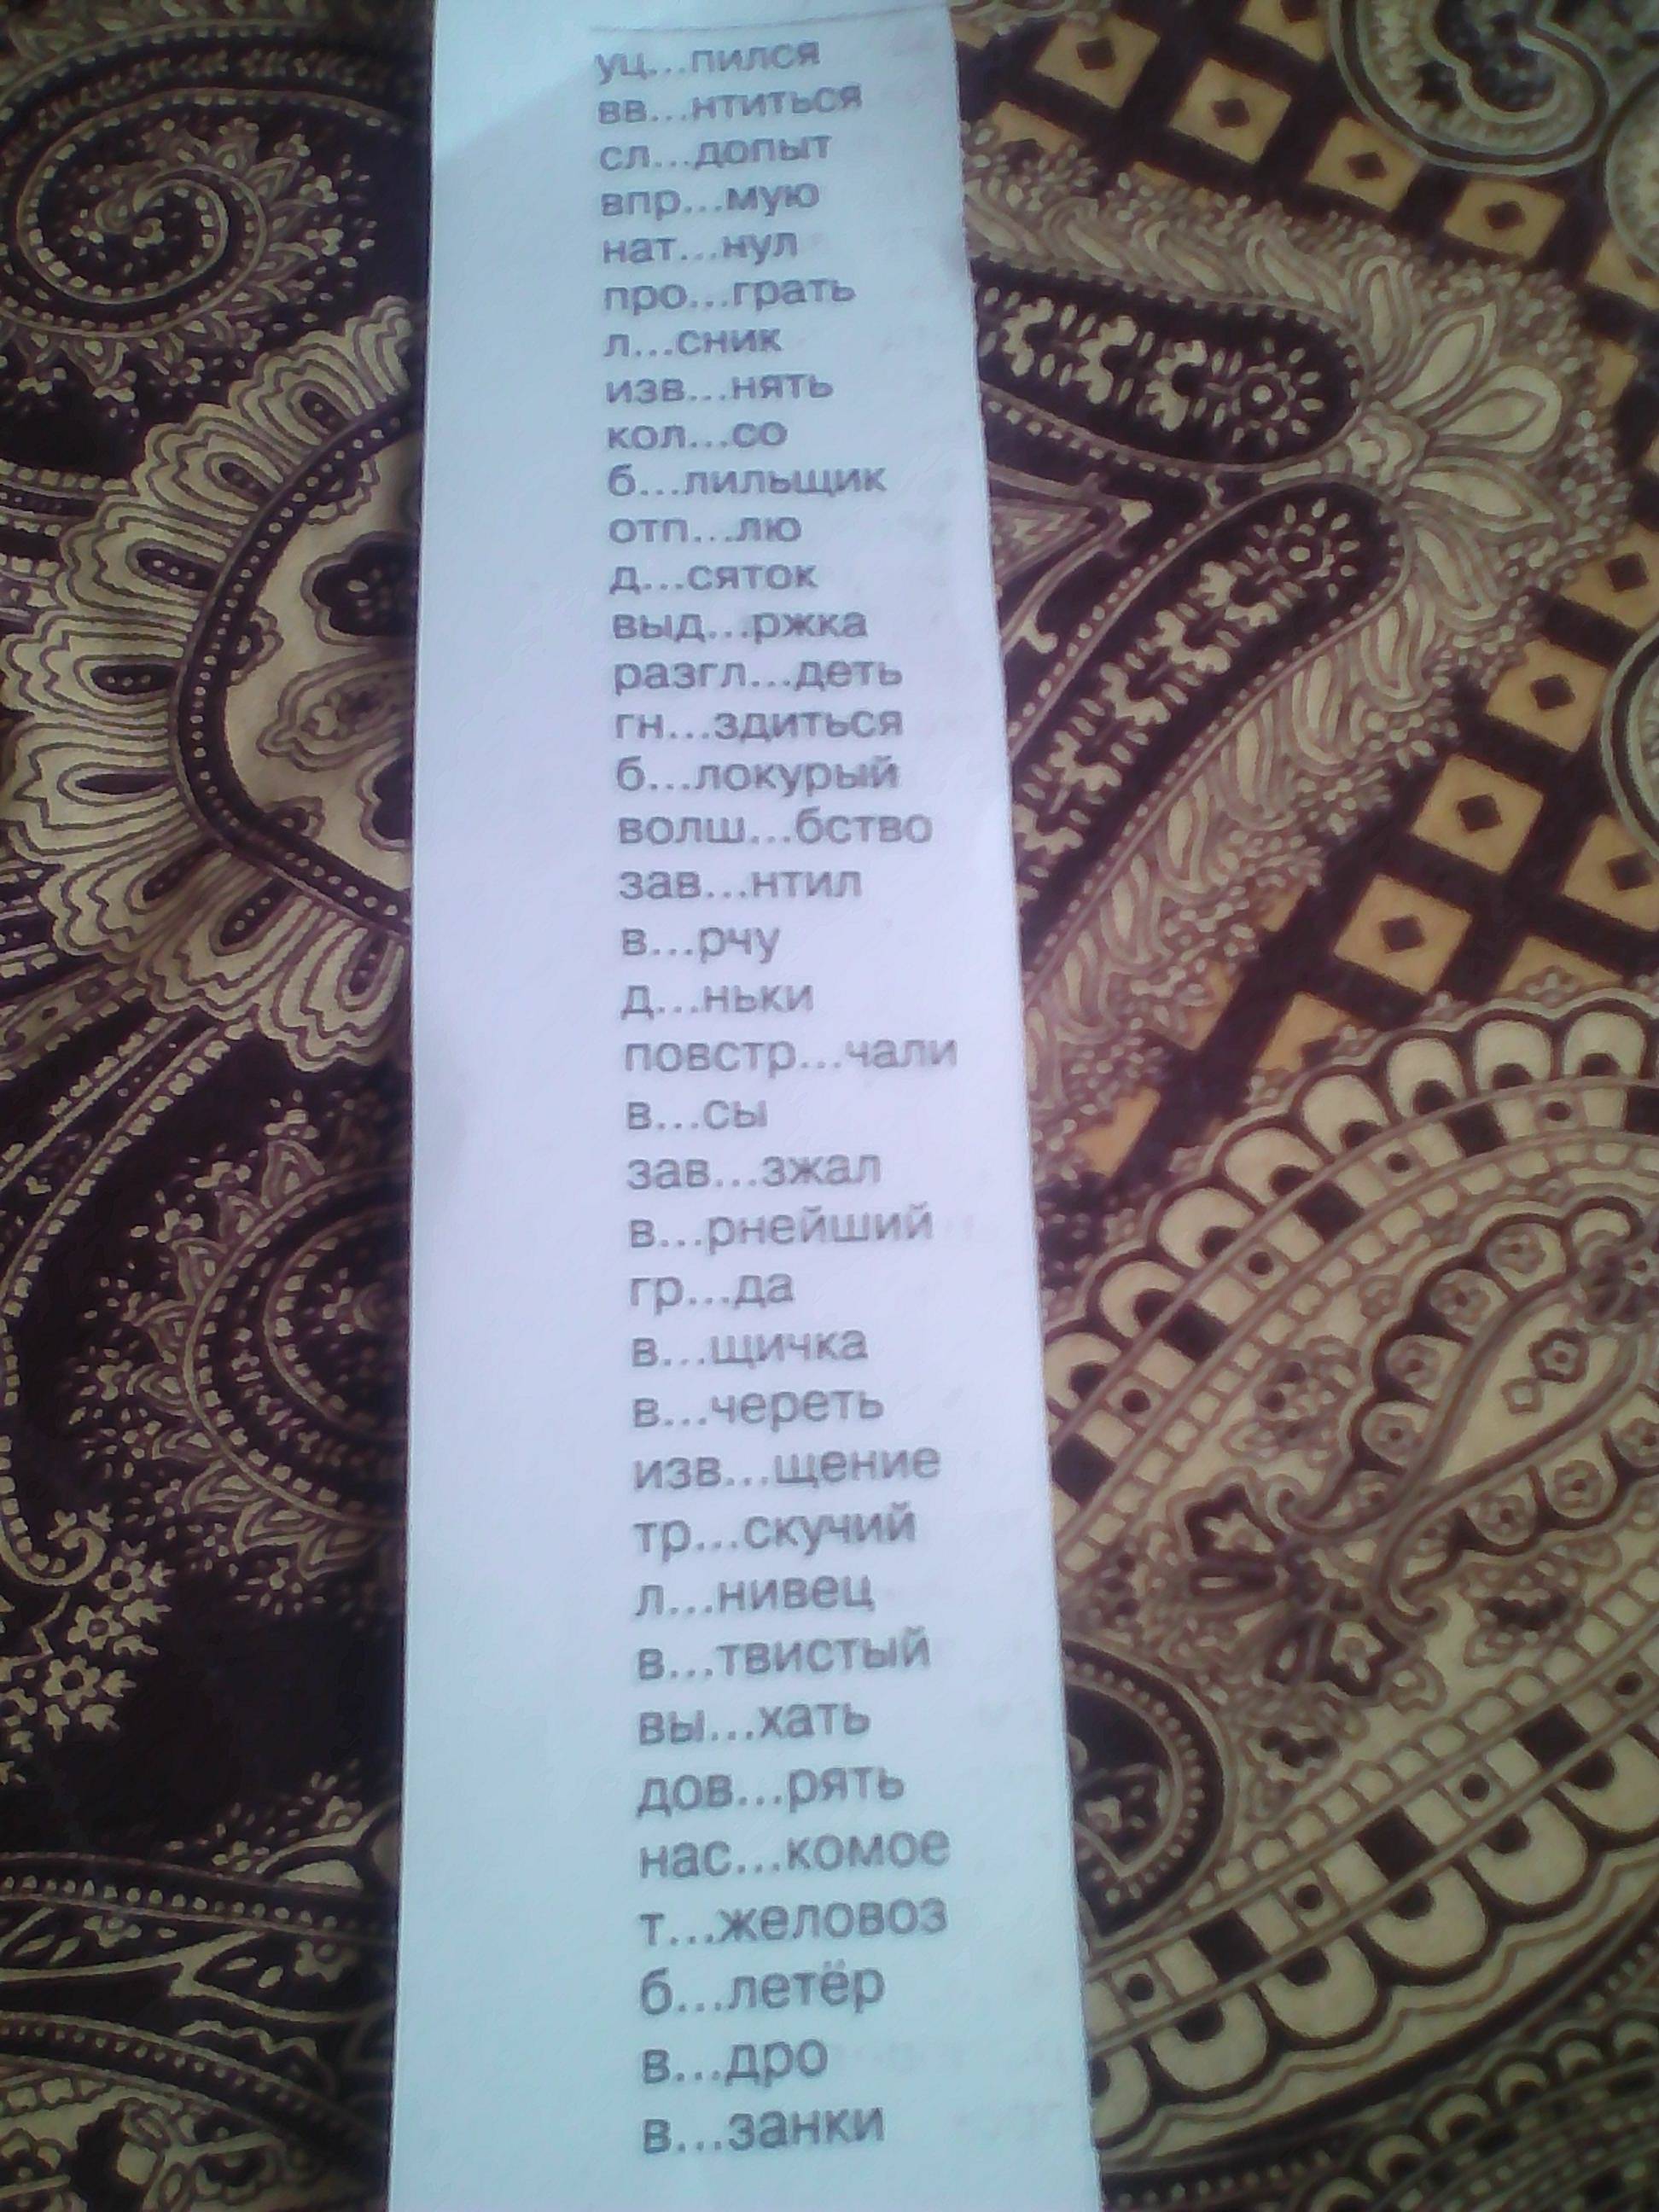 уц...пился
вв...нтиться
сл...допыт
впр...мую
нат...нул
про...грать
л...сник
изв...нять
кол...со
б...лильщик
отп...лю
д...сяток
выд...ржка
разгл...деть
гн...здиться
б...локурый
волш...бство
зав...нтил
в...рчу
д...ньки
повстр...чали
в...сы
зав...зжал
в...рнейший
гр...да
в...щичка
в...череть
изв...щение
тр...скучий
л...нивец
в...твистый
вы...хать
дов...рять
нас...комое
т...желовоз
б...летёр
в...дро
в...занки